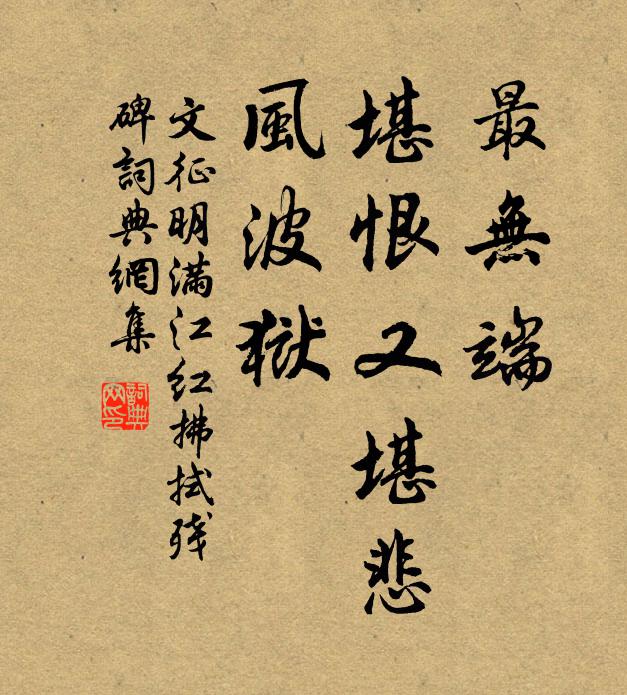 最無端
堪恨又堪悲
風波獄
文征明滿江紅拂拭殘
碑詞典網集
詞典
网印